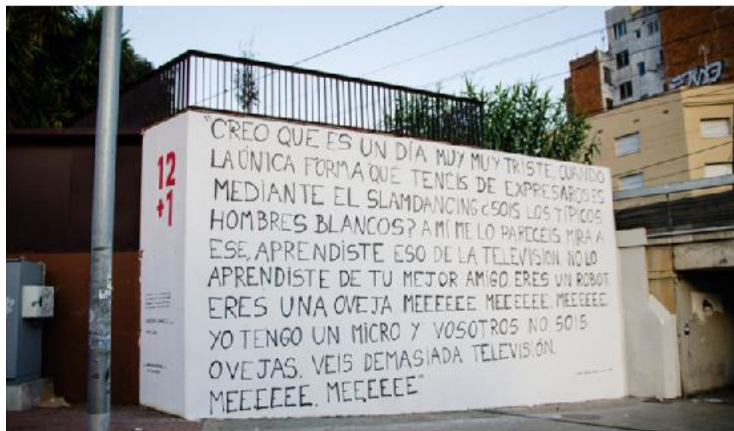 12
+1
"CREO QUE ES UN DÍA MUY MUY TRISTE, CUANDO
LA ÚNICA FORMA QUE TENÉIS DE EXPRESAROS ES
MEDIANTE EL SLAMDANCING ¿SOIS LOS TÍPICOS
HOMBRES BLANCOS? A MÍ ME LO PARECEIS. MIRA A
ESE, APRENDISTE ESO DE LA TELEVISIÓN. NO LO
APRENDISTE DE TU MEJOR AMIGO. ERES UN ROBOT
ERES UNA OVEJA. MEEEEEE MEEEEEE. MEEEEEE
YO TENGO UN MICRO Y VOSOTROS NO SOIS
OVEJAS. VEIS DEMASIADA TELEVISIÓN.
MEEEEEE. MEEEEEE"